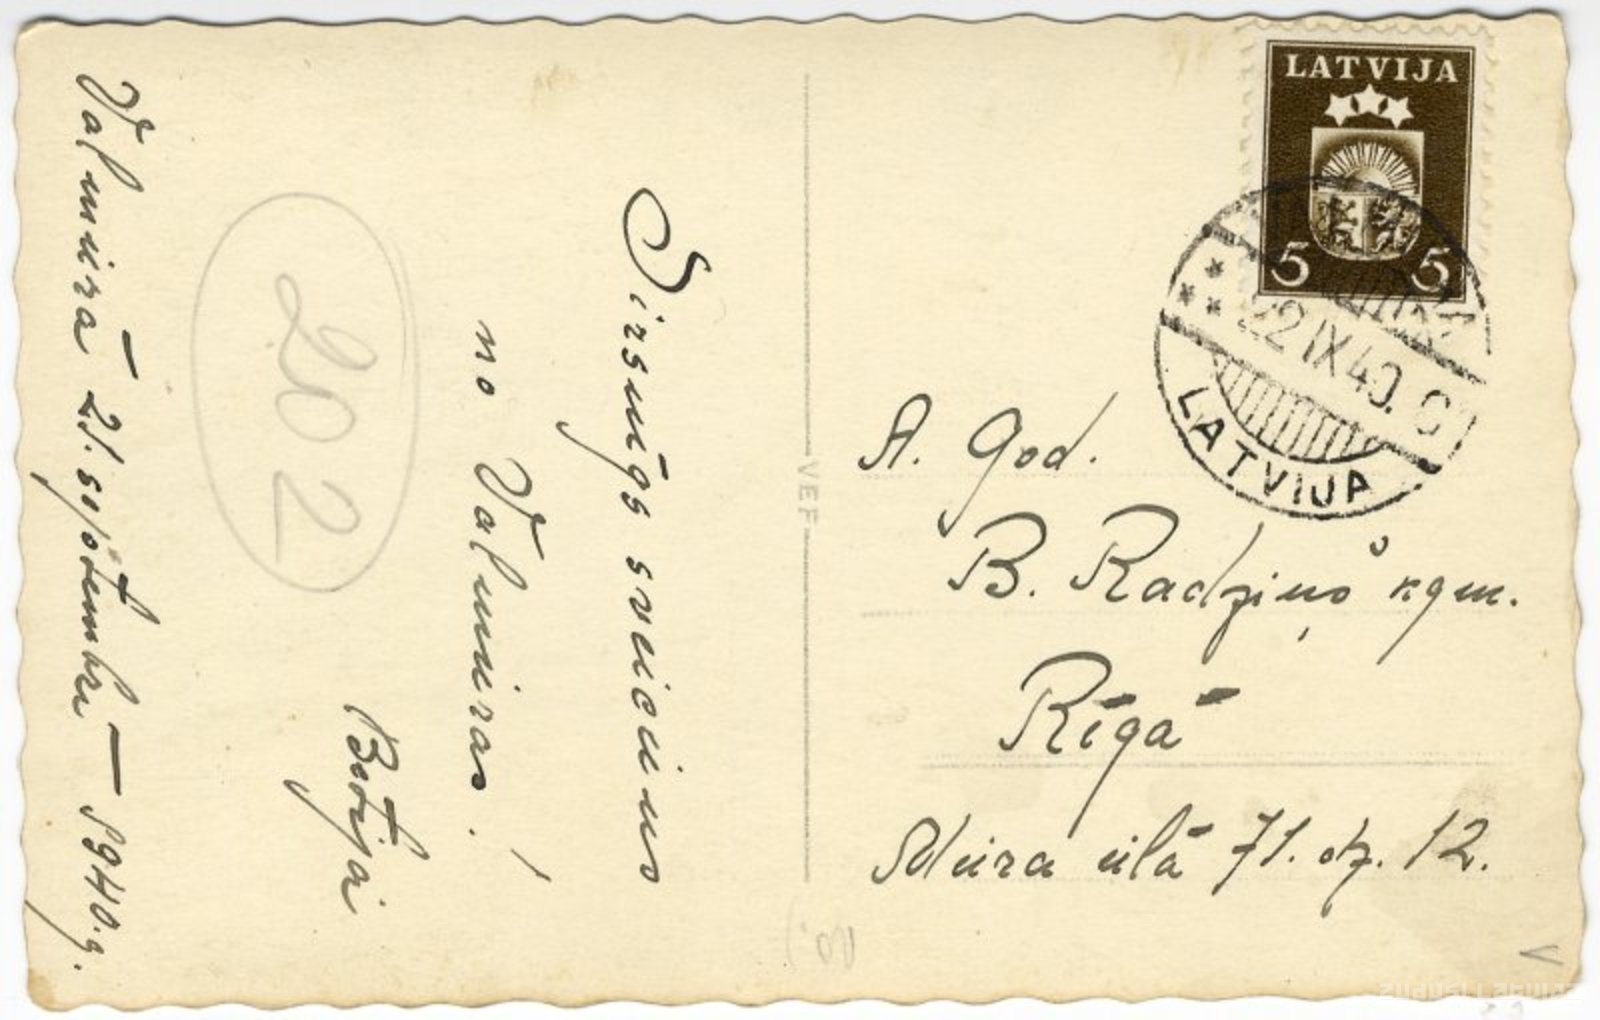 Valmierā 21. septembrī – 1940. g.
202
Sirsnīgs sveiciens
no Valmieras.
LATVIJA
5 5
22 IX 40.
LATVIJA
VEF
A. God.
B. Radziņš kgm.
Rīgā
Miera ielā 71. dz. 12.
ZUDUSI LATVIJA